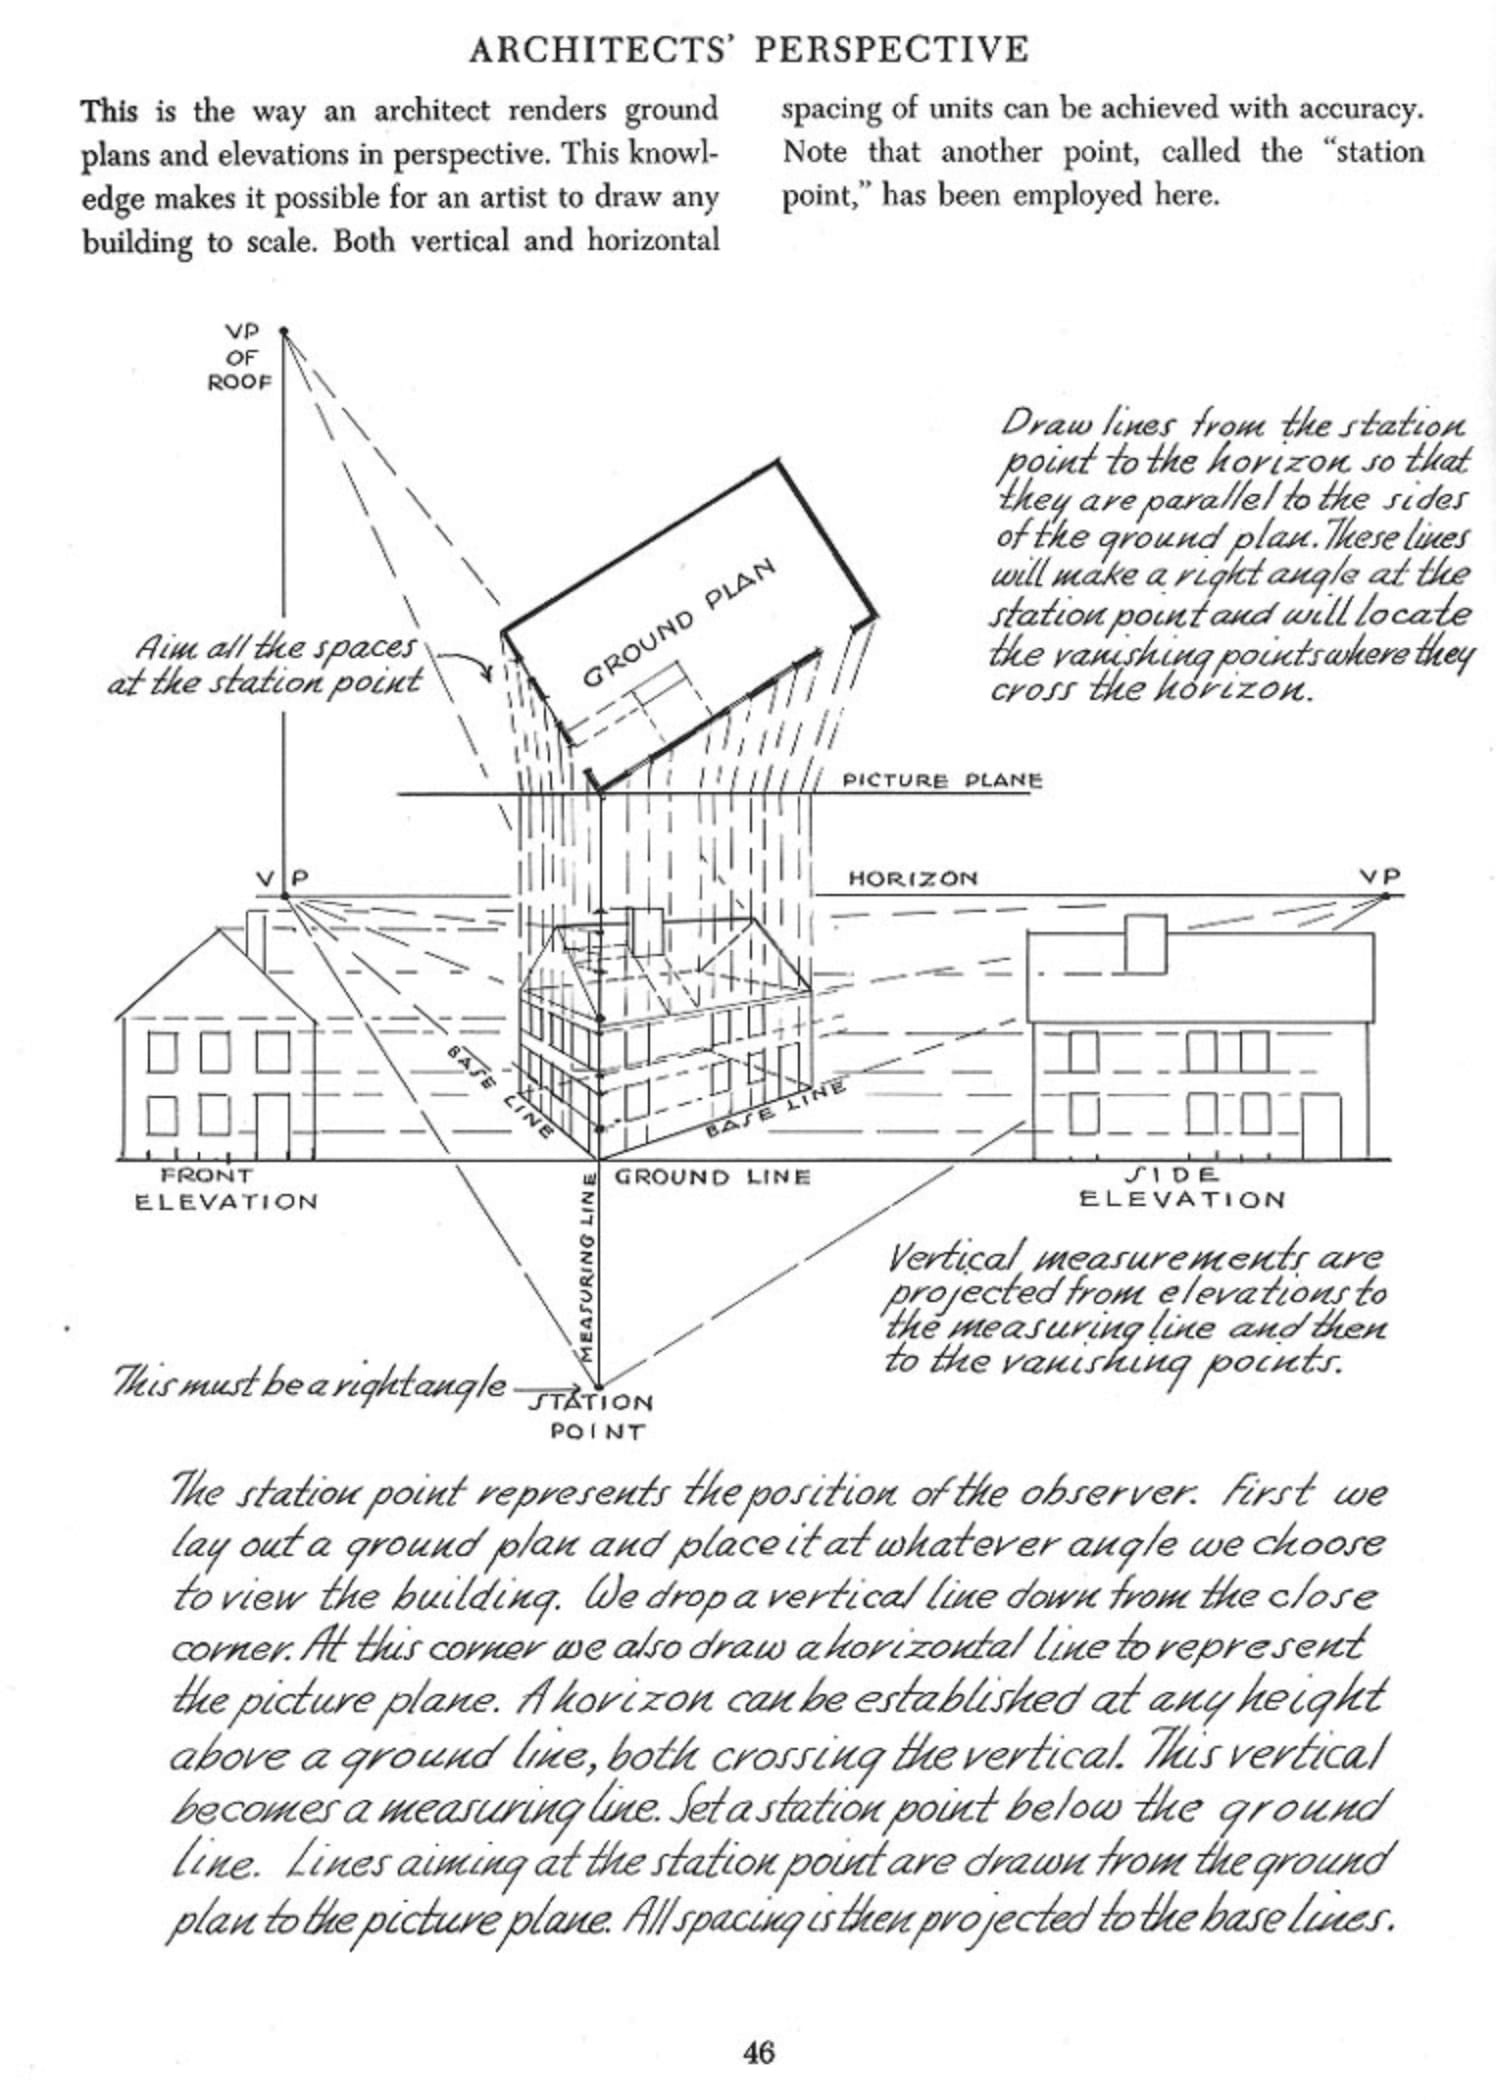 ARCHITECTS' PERSPECTIVE
This is the way an architect renders ground
plans and elevations in perspective. This knowl-
edge makes it possible for an artist to draw any
building to scale. Both vertical and horizontal
spacing of units can be achieved with accuracy.
Note that another point, called the "station
point," has been employed here.
VP
OF
ROOF
Draw lines from the station
point to the horizon so that
they are parallel to the sides
of the ground plan. These lines
will make a right angle at the
station point and will locate
the vanishing points where they
cross the horizon.
GROUND PLAN
Aim all the spaces
at the station point
PICTURE PLANE
VP
HORIZON
VP
BASE LINE
BASE LINE
FRONT
ELEVATION
GROUND LINE
SIDE
ELEVATION
MEASURING LINE
Vertical measurements are
projected from elevations to
the measuring line and then
to the vanishing points.
This must be a right angle
STATION
POINT
The station point represents the position of the observer. First we
lay out a ground plan and place it at whatever angle we choose
to view the building. We drop a vertical line down from the close
corner. At this corner we also draw a horizontal line to represent
the picture plane. A horizon can be established at any height
above a ground line, both crossing the vertical. This vertical
becomes a measuring line. Set a station point below the ground
line. Lines aiming at the station point are drawn from the ground
plan to the picture plane. All spacing is then projected to the base lines.
46